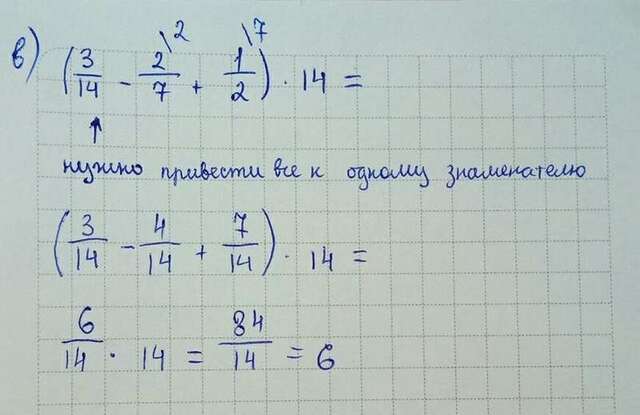 в) (3/14 - 2\2/7 + 1\7/2) · 14 =
нужно привести все к одному знаменателю
(3/14 - 4/14 + 7/14) · 14 =
6/14 · 14 = 84/14 = 6